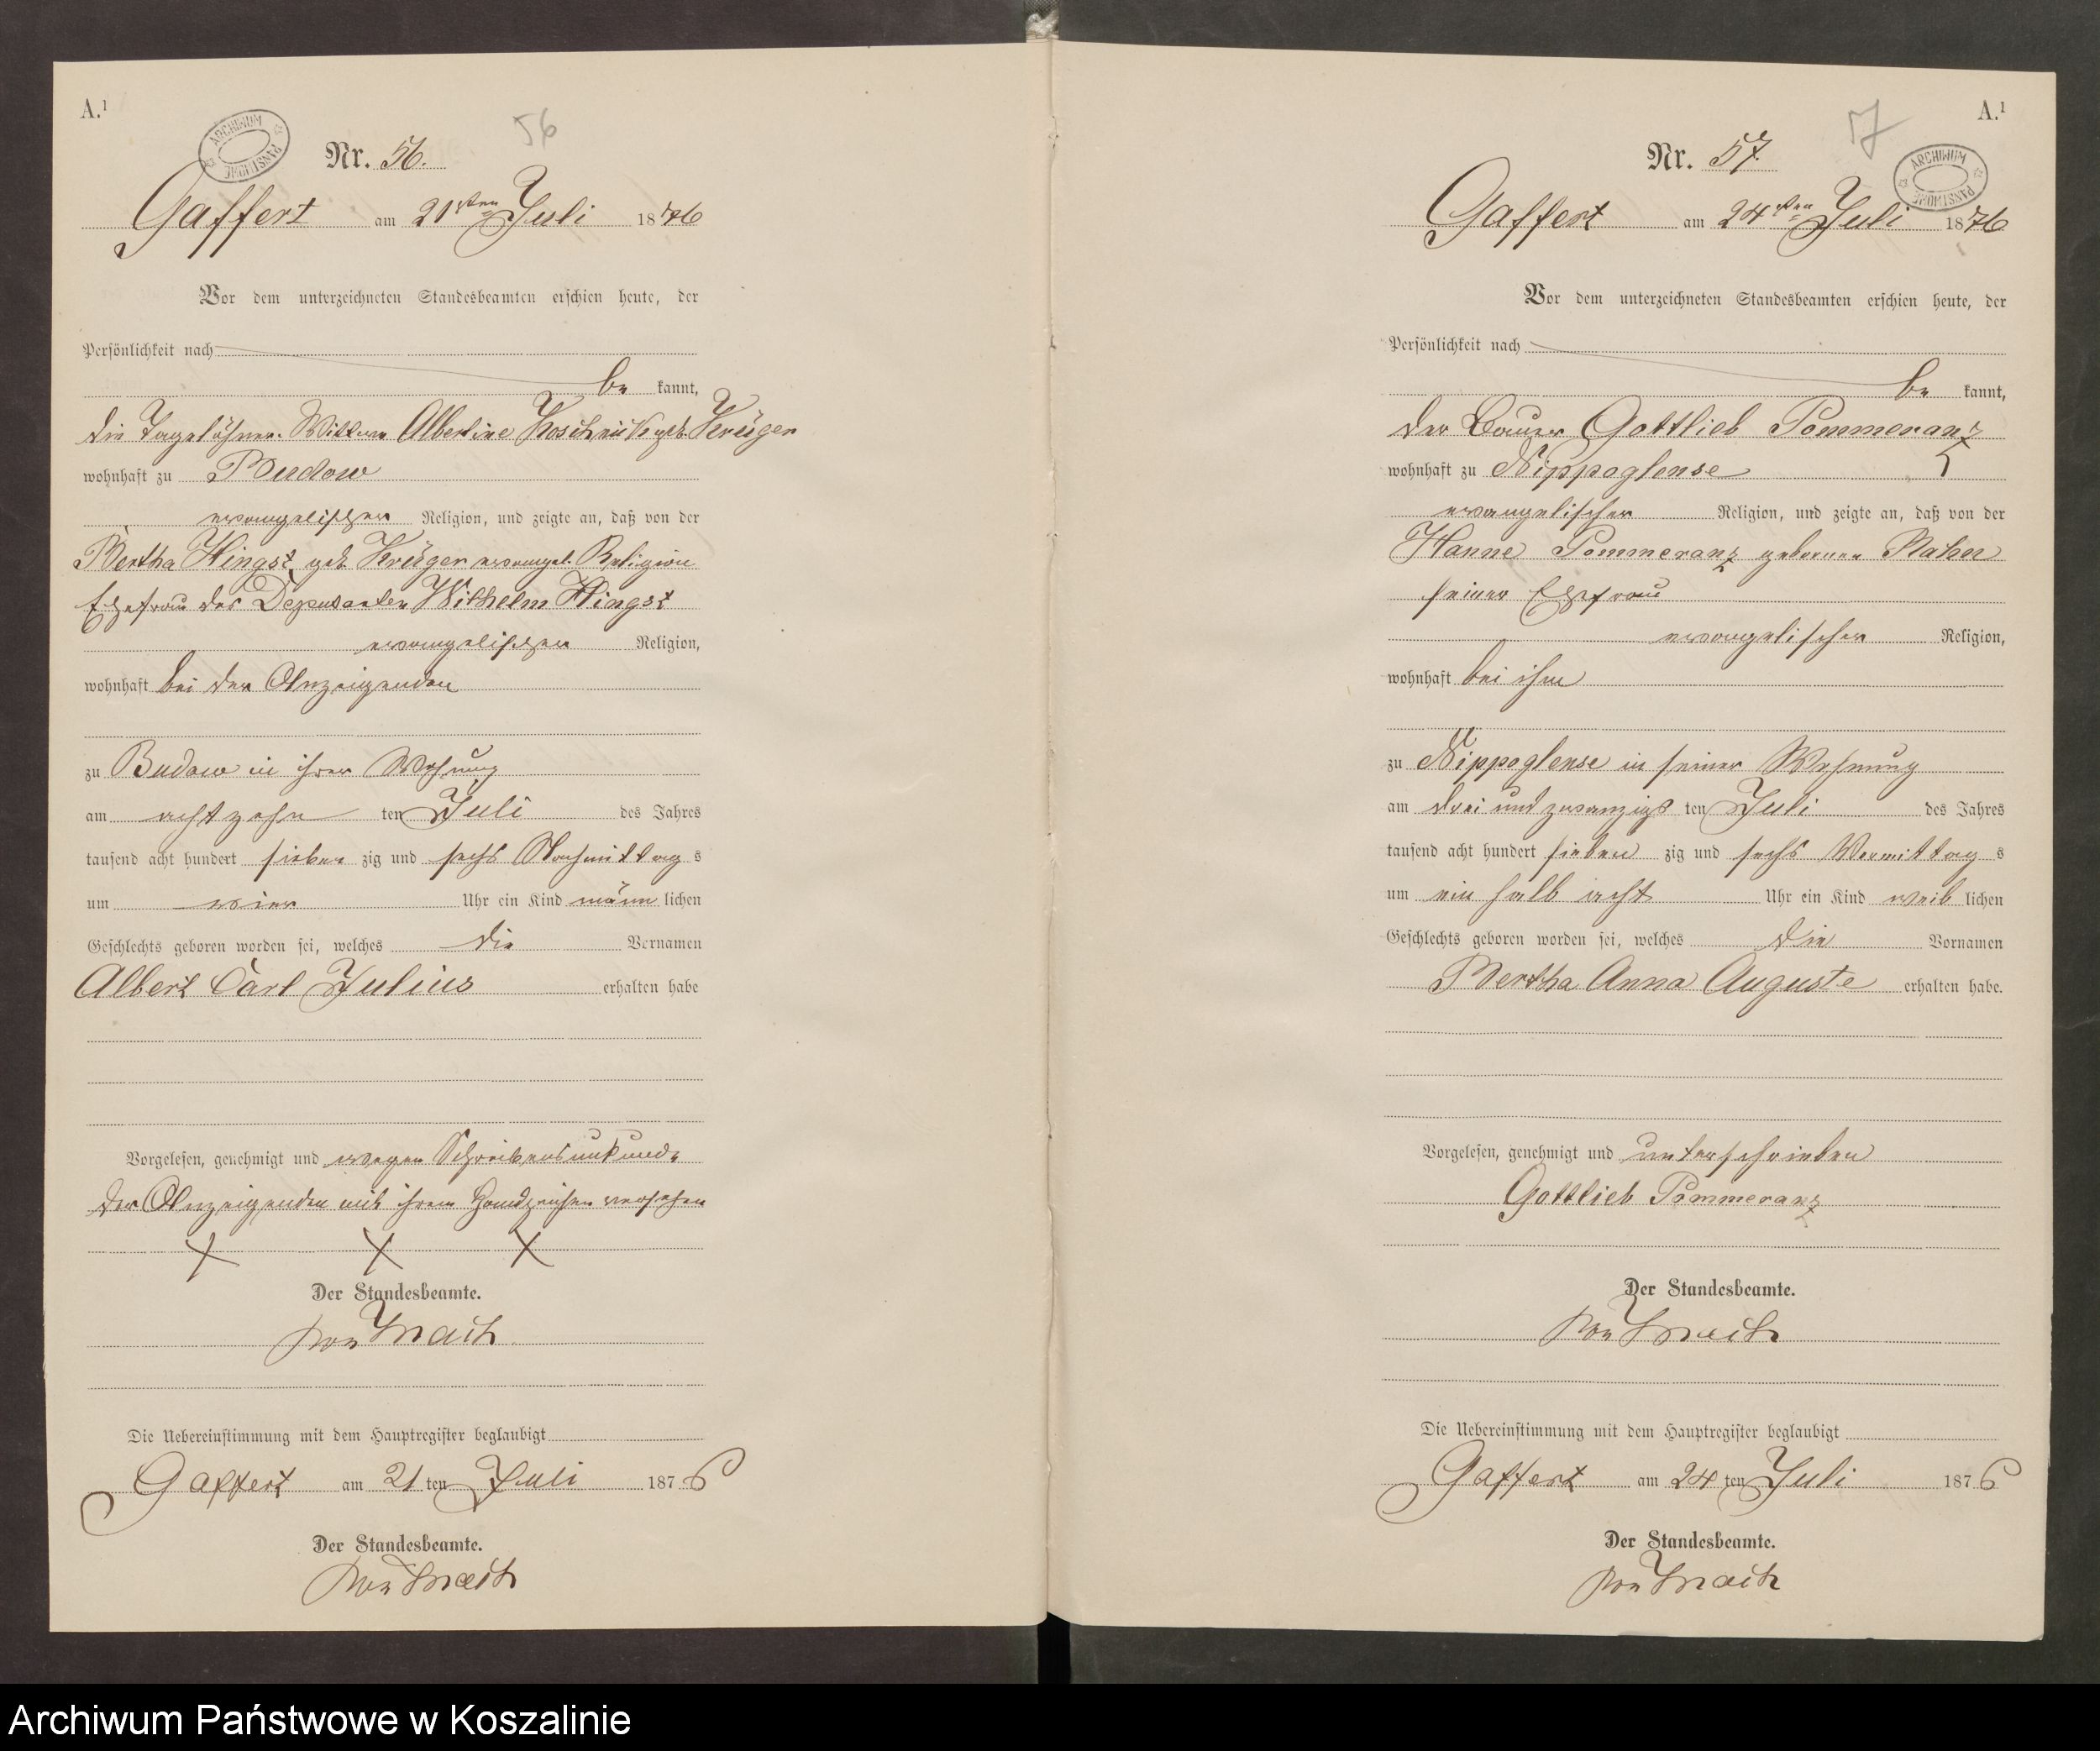 A.¹
ARCHIWUM PAŃSTWOWE
56
Nr. 56.
Gaffert am 21sten Juli 1876
Vor dem unterzeichneten Standesbeamten erschien heute, der
Persönlichkeit nach
be kannt,
die Tagelöhner Wittwe Albertine Koschnick geb. Krüger
wohnhaft zu Budow
evangelischer Religion, und zeigte an, daß von der
Bertha Hingst geb. Krüger evangel. Religion
Ehefrau des Deputanten Wilhelm Hingst
evangelischer Religion,
wohnhaft bei der Anzeigenden
zu Budow in ihrer Wohnung
am achtzehn ten Juli des Jahres
tausend acht hundert sieben zig und sechs Nachmittag s
um vier Uhr ein Kind männ lichen
Geschlechts geboren worden sei, welches die Vornamen
Albert Carl Julius erhalten habe
Vorgelesen, genehmigt und wegen Schreibensunkunde
der Anzeigenden mit ihrem Handzeichen versehen
X X X
Der Standesbeamte.
von
Die Uebereinstimmung mit dem Hauptregister beglaubigt
Gaffert am 21 ten Juli 1876
Der Standesbeamte.
von
A.¹
57
ARCHIWUM PAŃSTWOWE
Nr. 57.
Gaffert am 24sten Juli 1876
Vor dem unterzeichneten Standesbeamten erschien heute, der
Persönlichkeit nach
be kannt,
der Bauer Gottlieb Pommeranz
wohnhaft zu Nippoglense
evangelischer Religion, und zeigte an, daß von der
Hanne Pommeranz geborenen
seiner Ehefrau
evangelischer Religion,
wohnhaft bei ihm
zu Nippoglense in seiner Wohnung
am drei und zwanzigs ten Juli des Jahres
tausend acht hundert sieben zig und sechs Vormittag s
um ein halb acht Uhr ein Kind weib lichen
Geschlechts geboren worden sei, welches die Vornamen
Bertha Anna Auguste erhalten habe.
Vorgelesen, genehmigt und unterschrieben
Gottlieb Pommeranz
Der Standesbeamte.
von
Die Uebereinstimmung mit dem Hauptregister beglaubigt
Gaffert am 24 ten Juli 1876
Der Standesbeamte.
von
Archiwum Państwowe w Koszalinie